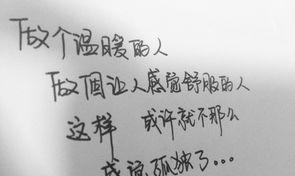 做个温暖的人
做個让人感觉舒服的人
这样 或许就不那么
感觉孤独了...